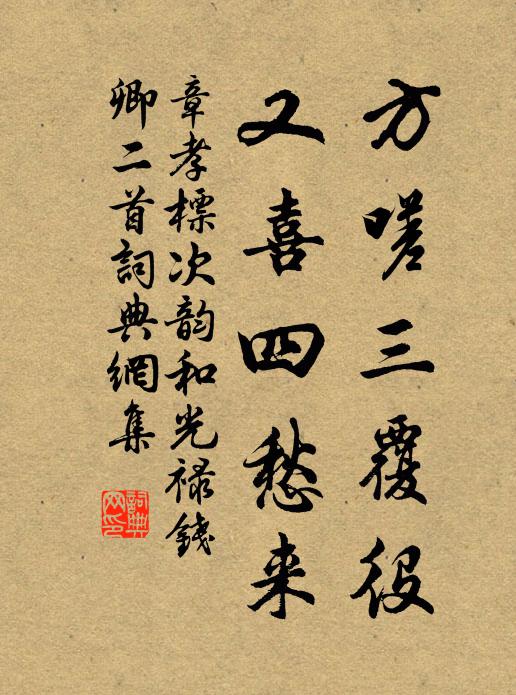 方嗟三覆役
又喜四愁来
章孝標次韵和光禄錢
卿二首詞典網集
詞典網印